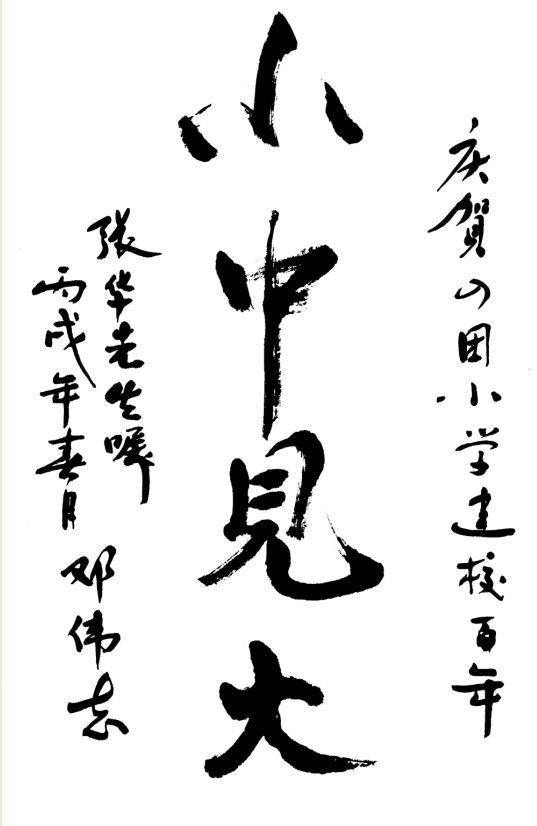 庆賀六团小学建校百年
小中見大
張华先生嘱
丙戌年春月
邓伟志